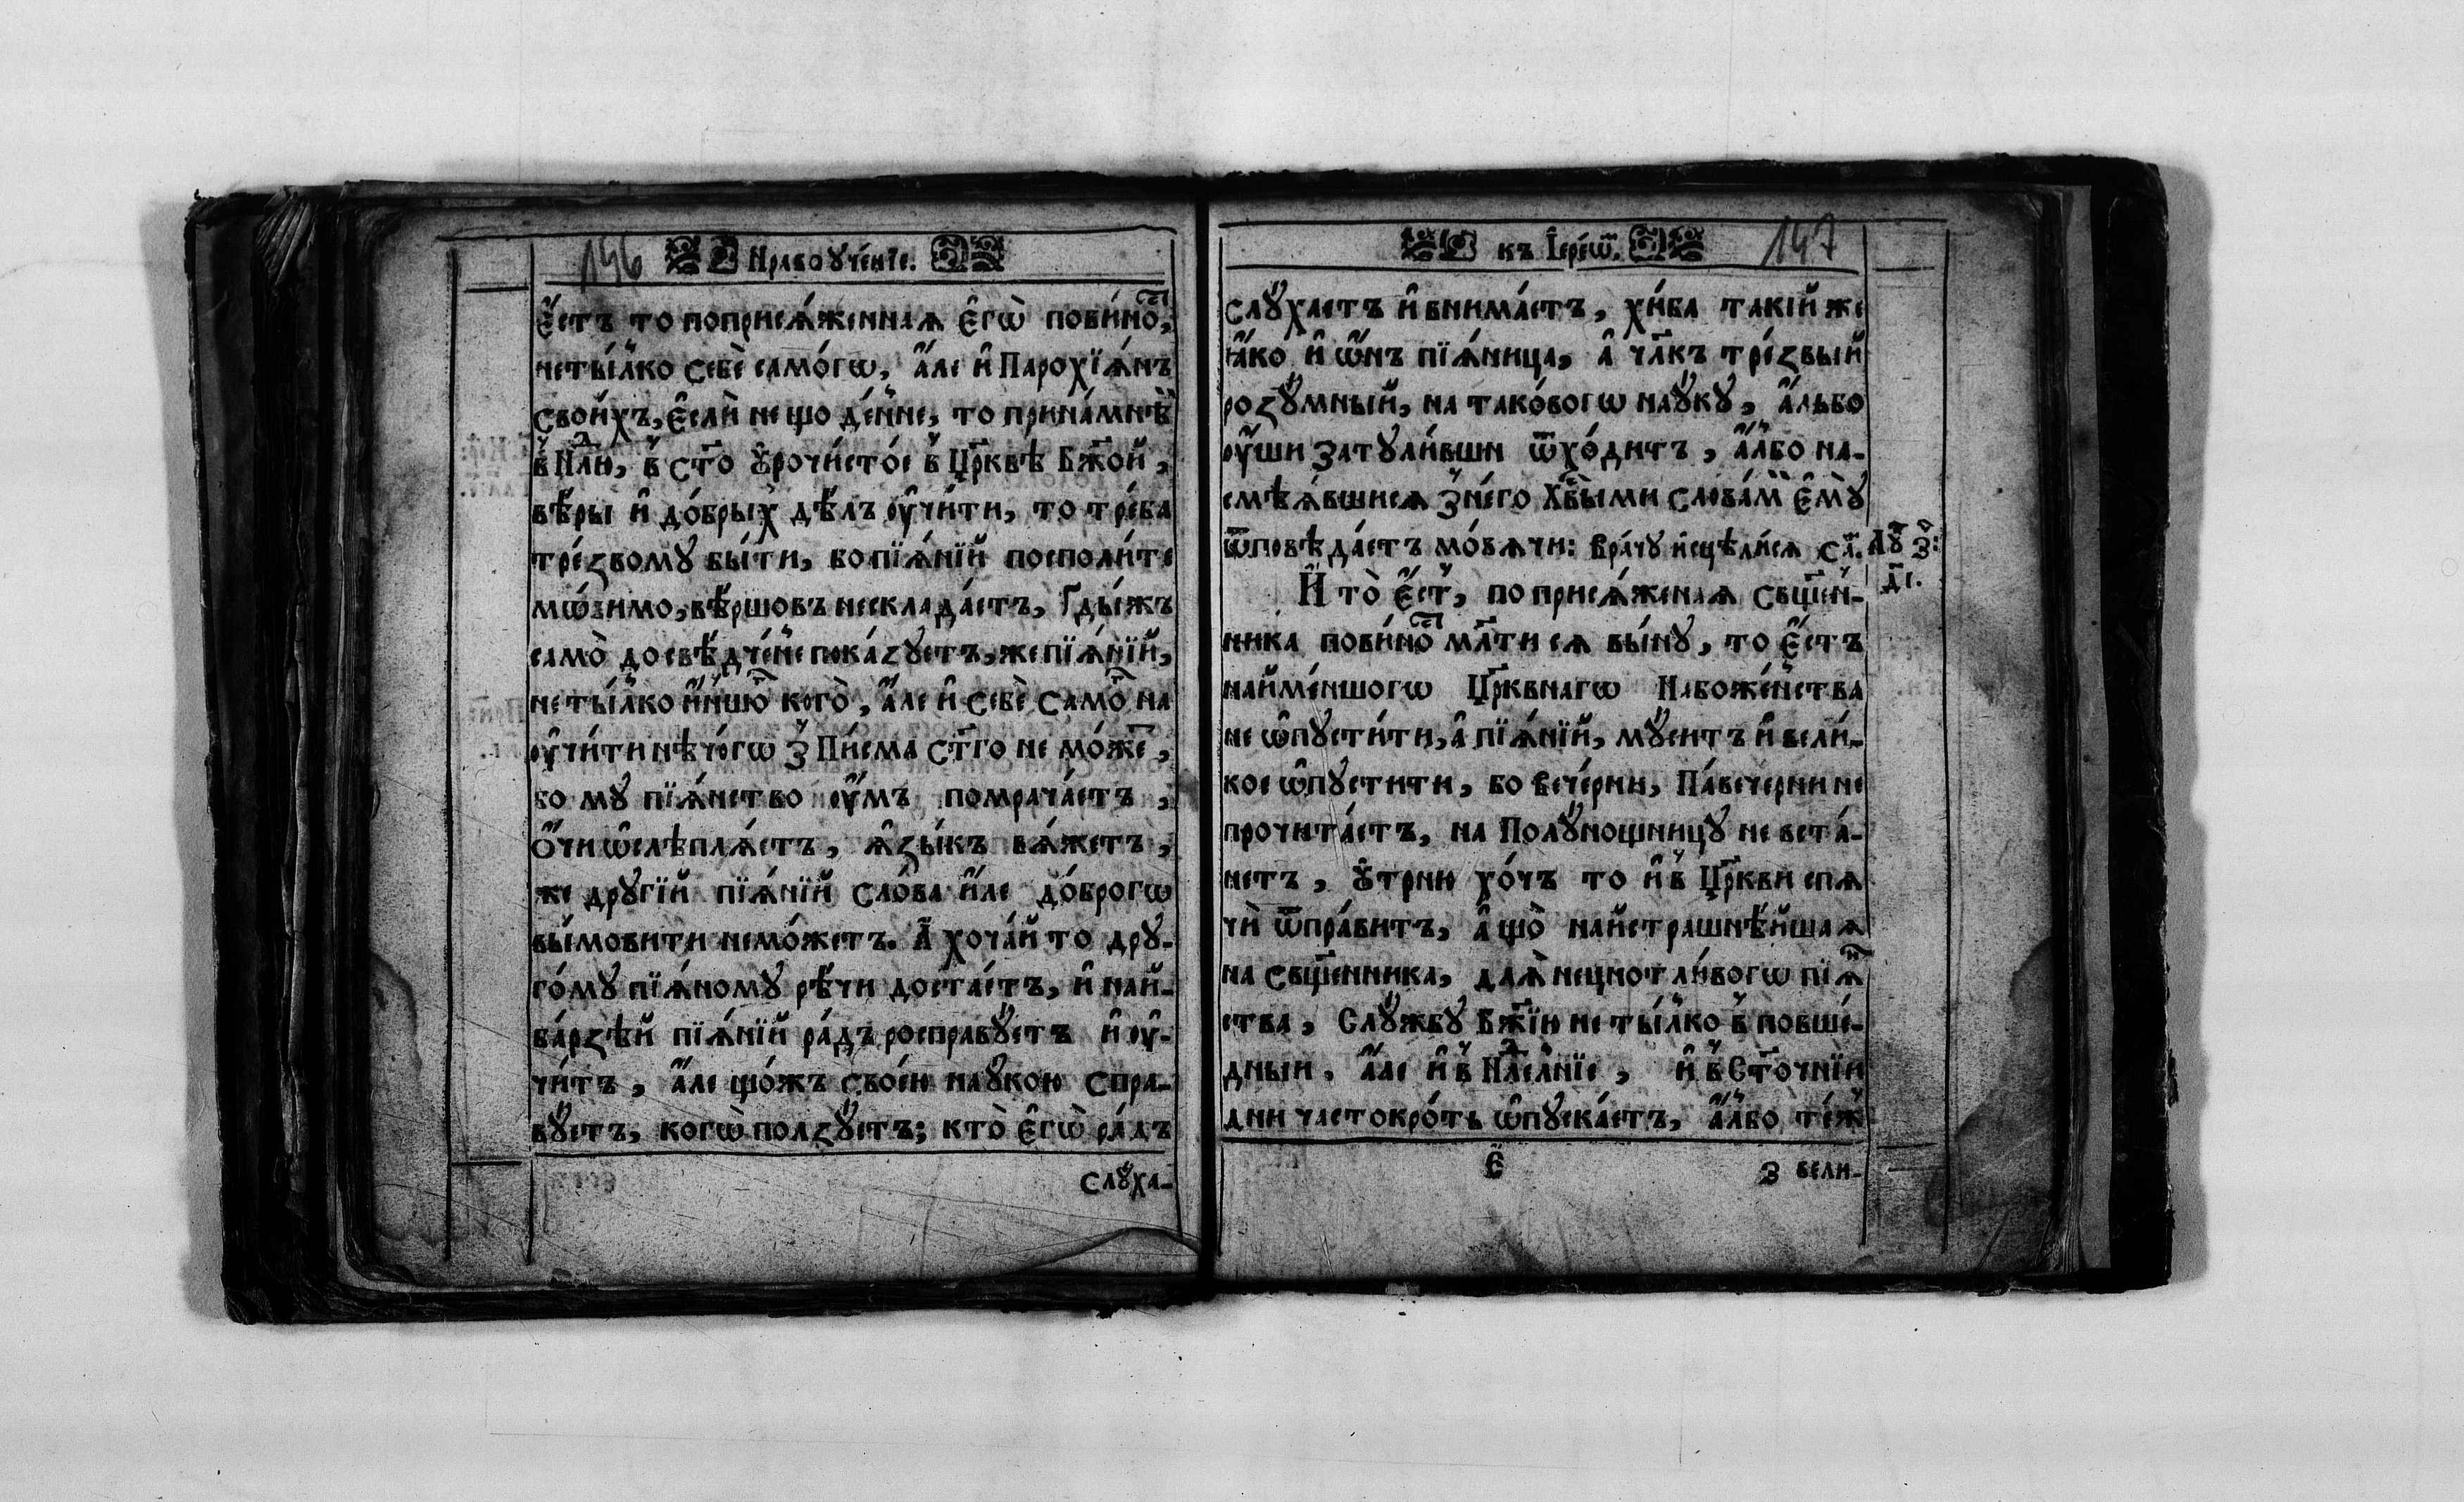 146 Нравоꙋче́нїе.
Е҆́стъ то поприсѧ́женнаѧ Е҆гѡ̀ пови́ноⷭ҇,
неты́лко себѐ само́гѡ, а҆́ле и҆ Парохїѧ́нъ
свои́хъ, Е҆слѝ не що де́нне, то прина́мнѣ
в̾ Нлⷣю, в̾ ст҃о ᲂу҆рочи́стое в̾ Цр҃квѣ Бж҃ой,
вѣ́ры и҆ до́брыхъ дѣ́лъ ᲂу҆чи́ти, то тре́ба
тре́звомꙋ бы́ти, бо пїѧ́нїй посполи́те
мѡ́вимо, вѣ́ршовъ нескладáетъ, Гды́жъ
само̀ досвѣ́дче́нїе пока́зꙋетъ, же пїѧ́нїй,
не ты́лко и҆́ншоⷢ҇ кого̀, а҆́ле и҆ себѐ самоⷢ҇ на
ᲂу҆чи́ти нѣчо́гѡ з̾ Пи́сма ст҃го не мо́жеⷮ,
бо мꙋ пїѧ́нство ᲂу҆́мъ помрача́етъ,
О҆́чи ѡ҆слѣплѧ́етъ, ѧ҆зы́къ вѧ́жетъ,
же дрꙋгі́й пїѧ́нїй сло́ва и҆́ле до́брогѡ
вы́мовити немо́жетъ. А҆ хоча́й то дрꙋ-
го́мꙋ пїѧ́номꙋ рѣ́чи доста́етъ, и҆ най-
ба́рзѣй пїѧ́нїй ра́дъ росправꙋ́етъ и҆ ᲂу҆-
чи́тъ, а҆́ле що́жъ свое́ю наꙋ́кою спра-
вꙋ́етъ, когѡ̀ ползꙋ́етъ; кто̀ Е҆гѡ̀ ра́дъ
слꙋ́ха-
къ І҆ере́ѡⷨ. 147
слꙋ́хаетъ и҆ внима́етъ, хи́ба такі́й же
ꙗ҆́ко и҆ ѡ҆́нъ пїѧ́ница, а҆ чл҃къ тре́звый
розꙋ́мный, на тако́вогѡ наꙋ́кꙋ, а҆́льбо
ᲂу҆́ши затꙋли́вши ѿхо́дитъ, а҆́лбо на-
смѣѧ́вшисѧ з̾ не́го Хв҃ыми слова́мⷨ Е҆мꙋ̀
ѿповѣда́етъ мо́вѧчи: Врачꙋ̀ и҆сцѣли́сѧ са́ⷨ.
Лꙋⷦ҇ з҃:
д҃і.
И҆ то̀ Е҆́стъ, по присѧ́женаѧ сщ҃е́н-
ника пови́ноⷭ҇ мл҃ти сѧ вы́нꙋ, то Е҆́стъ
найме́ншогѡ Цр҃ковнагѡ Набоже́нства
не ѡ҆пꙋсти́ти, а҆ пїѧ́нїй, мꙋ́ситъ и҆ вели́-
кое ѡ҆пꙋстити, бо Вече́рни, Па́вечерни не
прочита́етъ, на Полꙋ́нощницꙋ не вста́-
нетъ, ᲂу҆́трню хо́чъ то и҆ в̾ Цр҃кви спѧ
чѝ ѿпра́витъ, а҆ що̀ найстрашнѣ́йшаѧ
на сщ҃е́нника, длѧ̀ нецнотли́вогѡ пїѧⷩ҇
ства, Слꙋ́жбꙋ Бж҃їю не ты́лко в̾ повше́-
дныи, а҆́ле и҆ в̾ Нлⷣелнїе, и҆ в̾ Ст҃очнїи
дни частокро́ть ѡ҆пꙋска́етъ, а҆́лбо те́жъ
Є҃
З вели-